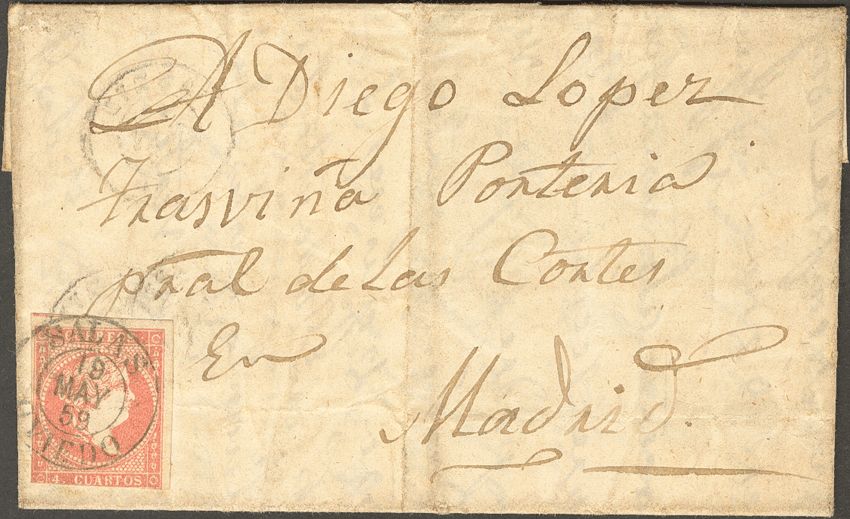 A Diego Lopez
Trasviña Porteria
pral de las Cortes
En
Madrid.
SALAS
19
MAY
59
OVIEDO
4. CUARTOS